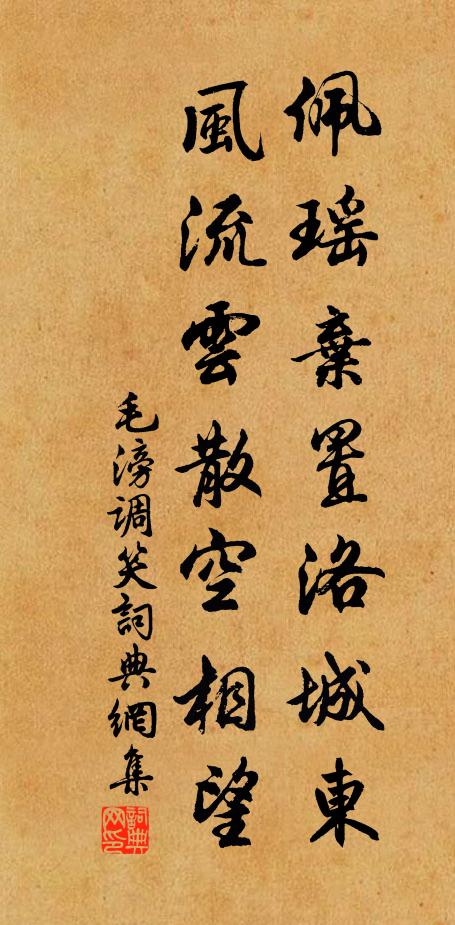 佩瑶棄置洛城東
風流雲散空相望
毛滂调笑詞典網集
詞典网印